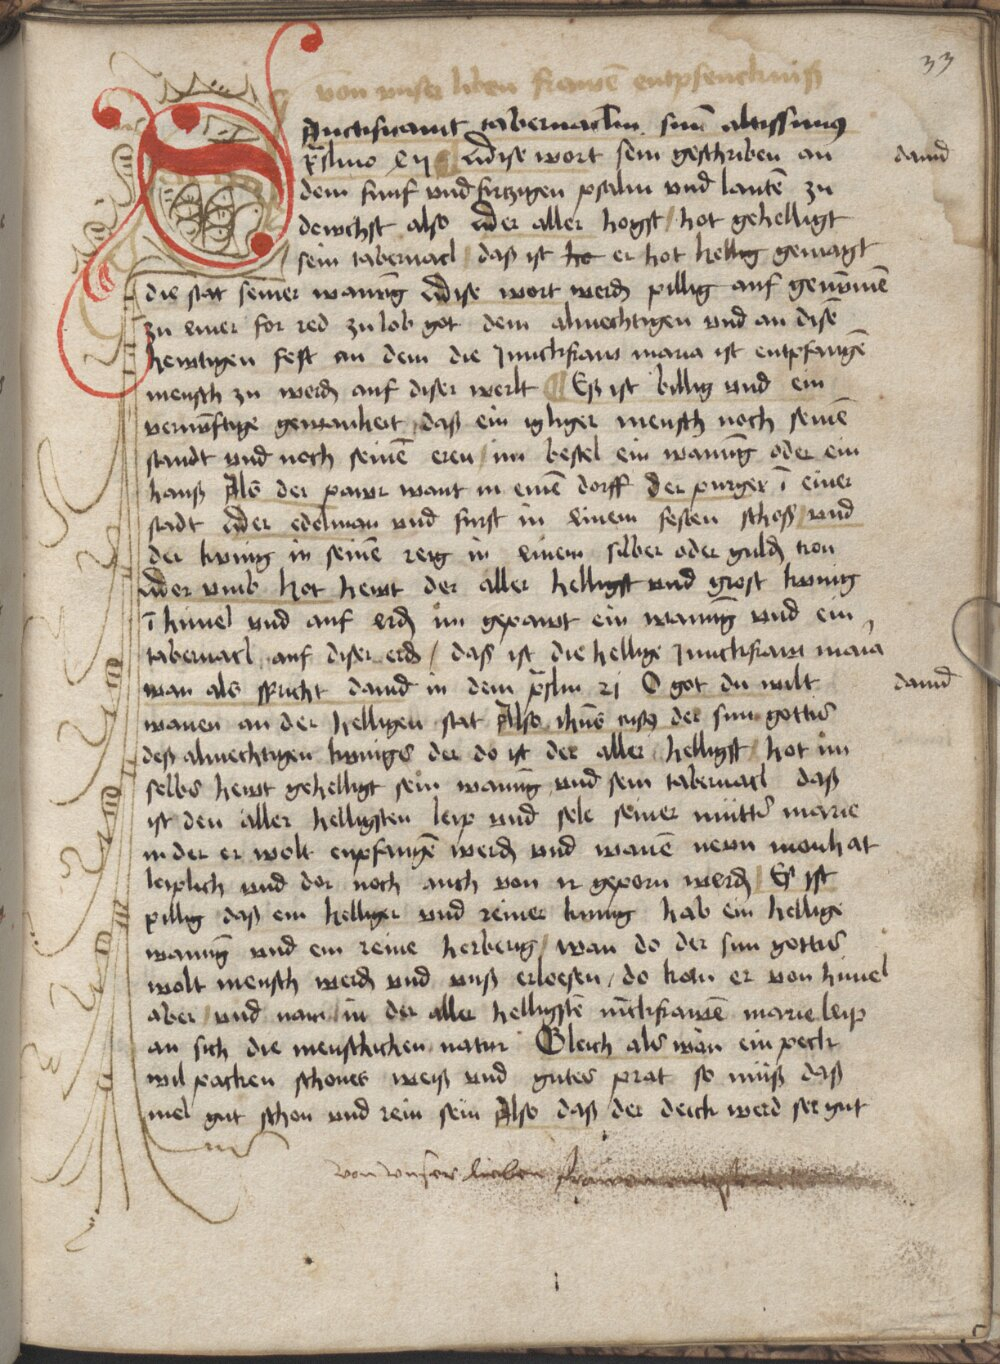 33
von vnser liben frawē entpfencknuß
SAnctificauit tabernaclm suū altissimus
p̄salmo xlv Dise wort sein geschriben an
dauid
dem funf vnd firtzigen psalm vnd lautē zu
dewchst also Der aller hogst / hot gehelligt
sein tabernacl / daß ist ho er hot hellig gemagt
die stat seiner wanūg Dise wort werdn pillig auf genomē
zu einer for red zu lob got dem almechtigen vnd an disē
hewtigen fest an dem die Junckfraw maria ist entpfangē
mensch zu werdn auf diser werlt Eß ist billig vnd ein
vernūftige gewanheit / daß ein igliger mensch noch seinē
standt vnd noch seinē eren / im bestel ein wanūg oder ein
hauß Als der pawr want in einē dorff der purger ī einer
stadt Der edelman vnd furst in einem festen schoß vnd
der kunig in seinē reig in einem silber oder guldn tron
Dar vmb hot hewt der aller helligst vnd grost kunig
ī himel vnd auf erdn im gepawt ein wanūg vnd ein
tabernacl auf diser erdn / daß ist die hellige Junckfraw maria
wan als spricht dauid in dem p̄salm xi O got du wilt
dauid
wanen an der helligen stat Also ihūs cristus der sun gottes
deß almechtigen kuniges der do ist der aller helligst / hot im
selbs hewt gehelligt sein wanūg vnd sein tabernacl daß
ist den aller helligsten leip vnd sele seiner mutter marie
in der er wolt enpfangē werdn vnd wanē newn monhat
leiplich vnd dor noch auch von ir geporn werdn Eß ist
pillig daß ein helliger vnd reiner kunig hab ein hellige
wanūg vnd ein reine herberig / wan do der sun gottes
wolt mensch werdn vnd vnß erloesen / do kom er von himel
aber / vnd nam / in der aller helligstē iūckfrawē marie leip
an sich die menschlichen natur Gleich als wan ein peck
wil pachen schones weiß vnd gutes prat so muß daß
mel gut schon vnd rein sein Also daß der deick werd ser gut
von vnser lieben frawen